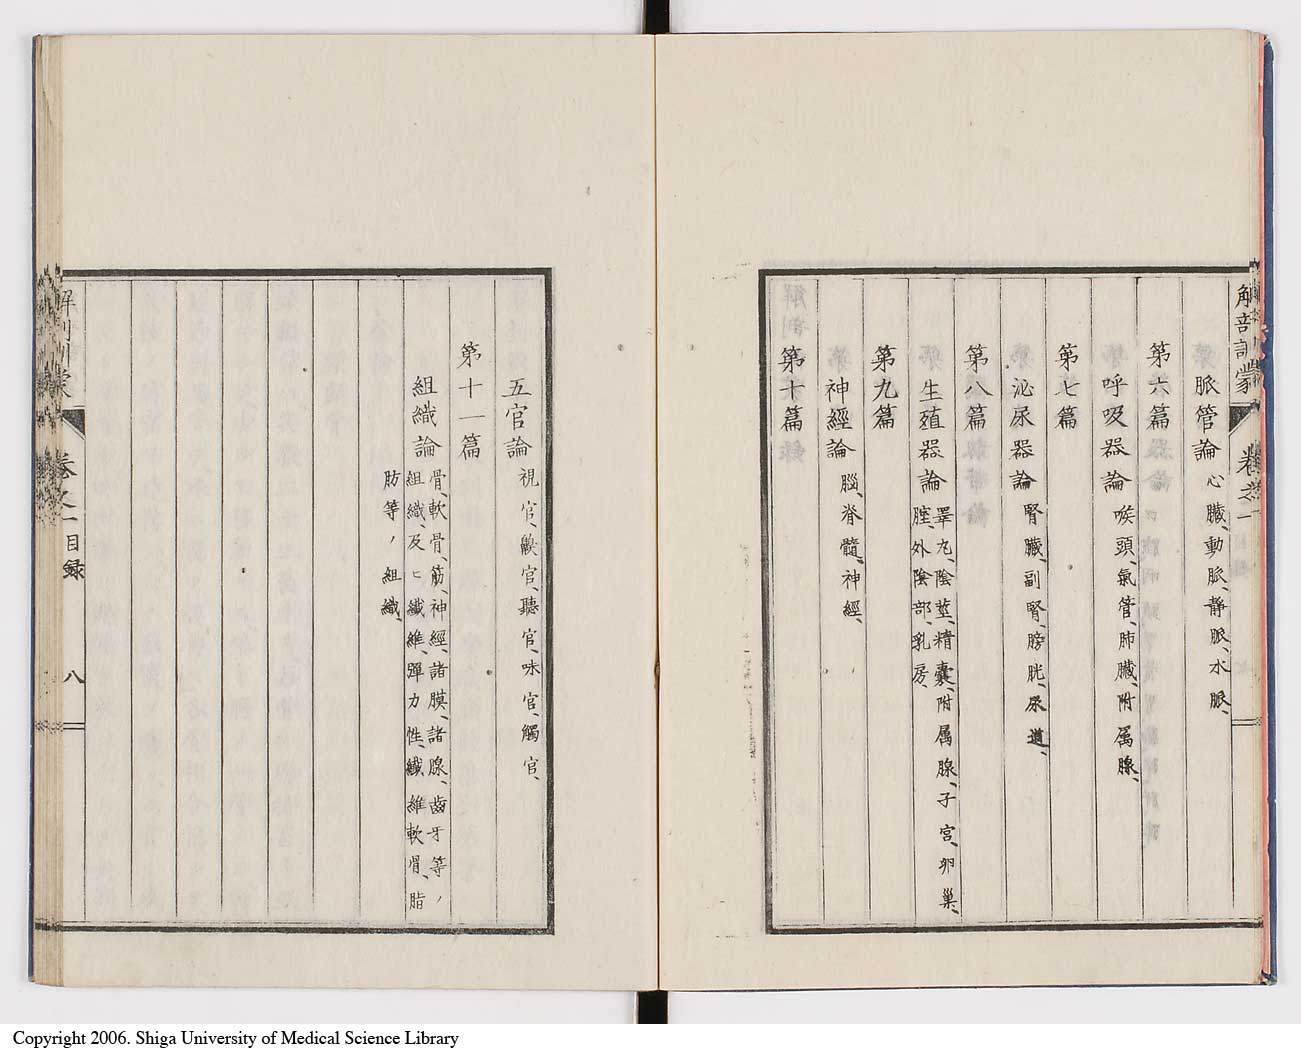 解剖訓蒙 卷之一
脈管論 心臓、動脈、靜脈、水脈、
第六篇
呼吸器論 喉頭、氣管、肺臓、附属腺、
第七篇
泌尿器論 腎臓、副腎、膀胱、尿道、
第八篇
生殖器論 睪丸、陰莖、精囊、附属腺、子宮、卵巢、
腟外陰部、乳房、
第九篇
神經論 腦、脊髓、神經、
第十篇
五官論 視官、齅官、聽官、味官、觸官、
第十一篇
組織論 骨、軟骨、筋、神經、諸膜、諸腺、齒牙等ノ
組織、及ヒ纖維、彈力性、纖維軟骨、脂
肪等ノ組織、
解剖訓蒙 卷之一 目録 八
Copyright 2006. Shiga University of Medical Science Library